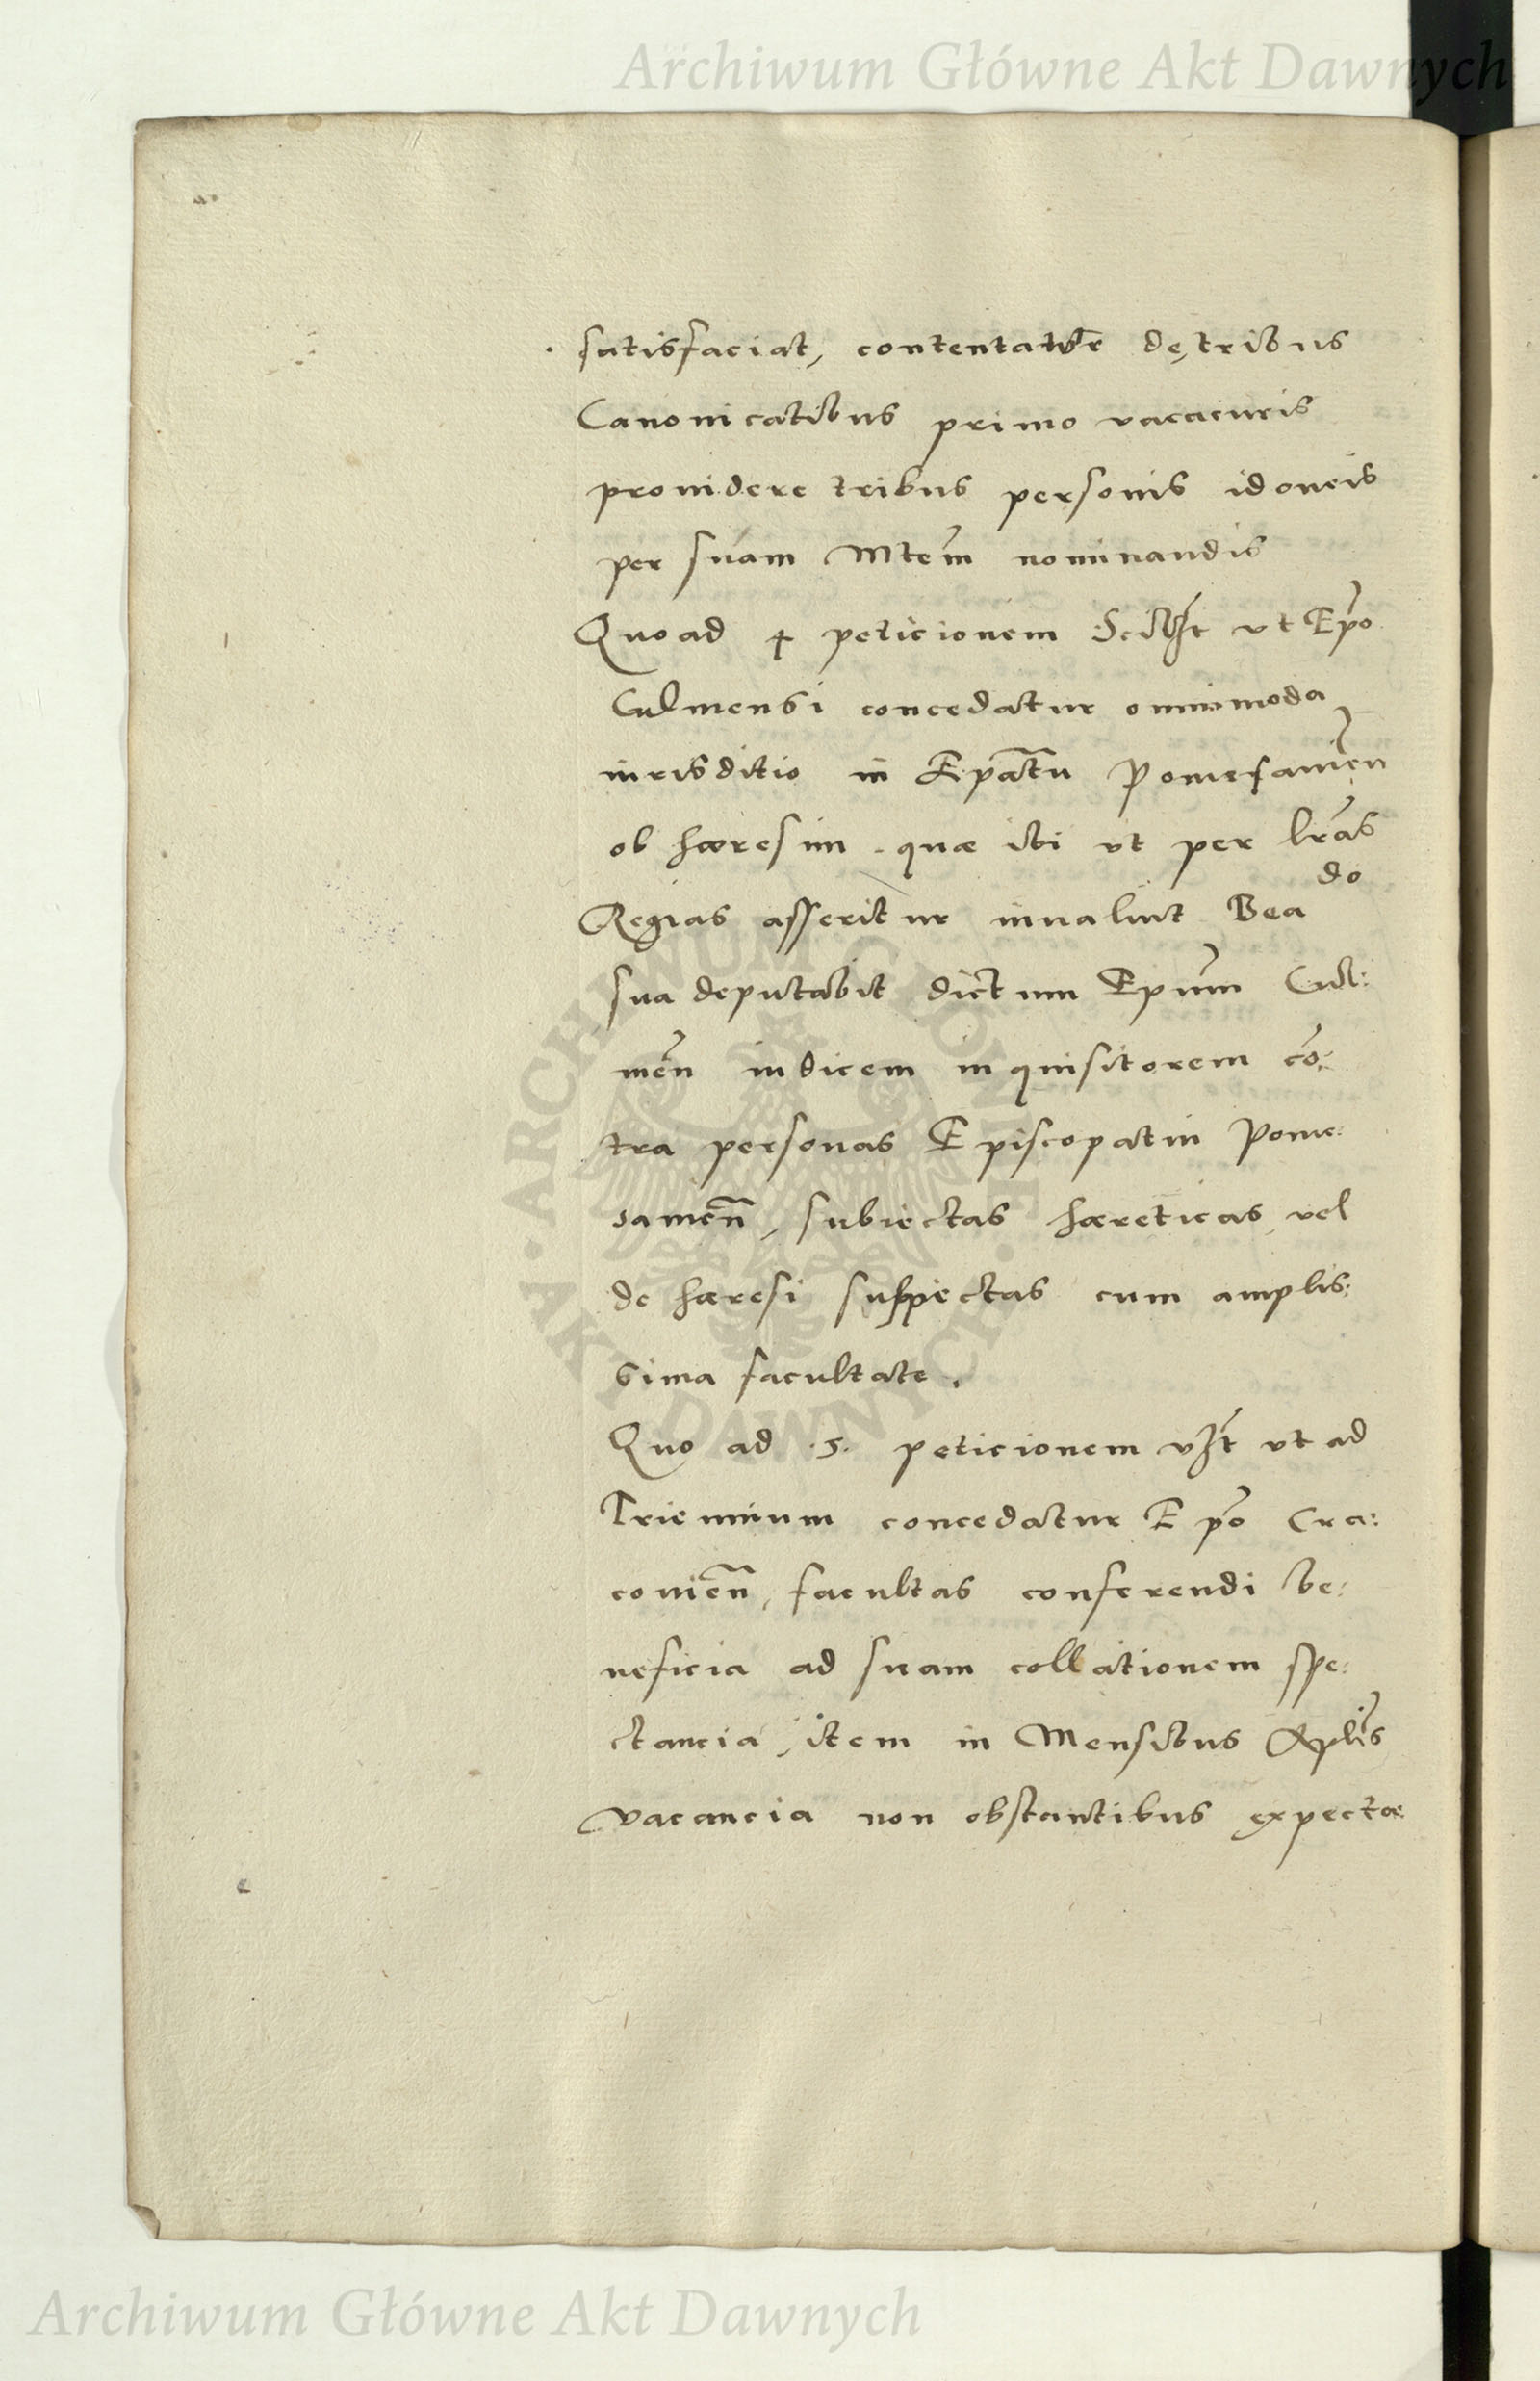 Archiwum Główne Akt Dawnych
satisfaciat, contentatur de tribus
Canonicatibus primo vacaturis
providere tribus personis idoneis
per suam Mtem nominandis
Quoad 4 peticionem Scilicet ut Epo
Culmensi concedatur omnimoda
iurisditio in Epatu Pomesanien
ob hæresim quæ ibi ut per lras
Regias asseritur invaluit Beado
sua deputabit dictum Epum Cul:
men iudicem inquisitorem co:
tra personas Episcopatui Pome:
sanien, subiectas hæreticas vel
de hæresi suspectas cum amplis:
sima facultate.
Quo ad .5. peticionem vzt ut ad
Triennium concedatur Epo Cra:
covien, facultas conferendi be:
neficia ad suam collationem spe:
ctancia, item in Mensibus Aplis
vacancia non obstantibus expectæ
ARCHIWUM GŁÓWNE · AKT DAWNYCH ·
Archiwum Główne Akt Dawnych